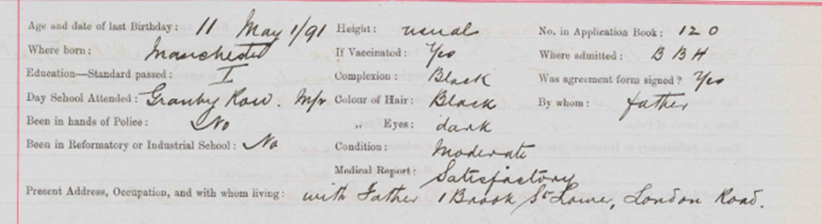 Age and date of last Birthday : 11 May 1/91 Height: usual No. in Application Book : 120
Where born : Manchester If Vaccinated : Yes Where admitted : B B H
Education—Standard passed : I Complexion : Black Was agreement form signed ? Yes
Day School Attended : Granby Row. M/r Colour of Hair : Black By whom : father
Been in hands of Police : No „ Eyes : dark
Been in Reformatory or Industrial School : No Condition : Moderate
Medical Report : Satisfactory
Present Address, Occupation, and with whom living : with Father 1 Brook St London Road.